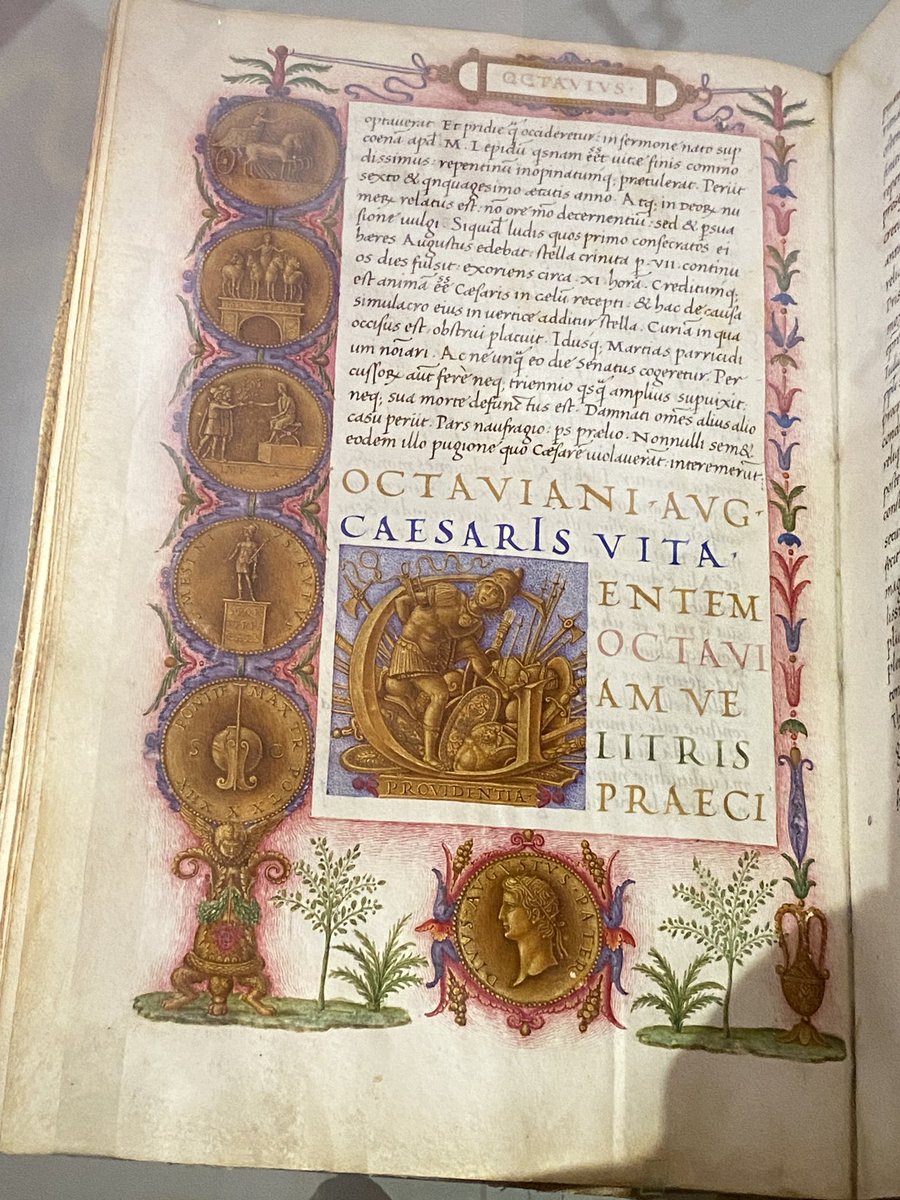 OCTAVIUS·
optauerat. Et pridie q̃ occideretur: in sermone nato sup
coena apd̃ M. Lepidũ qsnam eēt uitæ finis commo
dissimus: repentinũ inopinatumq; prætulerat. Periit
sexto & qnquagesimo ætatis anno. Atq; in DEORꝶ nu
merꝶ relatus est: nõ ore mõ decernentiũ: sed & psua
sione uulgi. Siquid̃ ludis quos primo consecratos ei
hæres Augustus edebat: stella crinita p. VII. continu
os dies fulsit: exoriens circa ·XI· horã. Creditumq;
est animã eē Cæsaris in cælũ recepti. & hac de causa
simulacro eius in uertice additur stella. Curiã in qua
occisus est: obstrui placuit. Idusq; Martias parricidi
um noīari. Ac ne unq̃ eo die senatus cogeretur. Per
cussorꝶ aũt fere neq; triennio qsq̃ amplius supuixit.
neq; sua morte defunctus est. Damnati oēs alius alio
casu periit. Pars naufragio: ps prælio. Nonnulli sem&
eodem illo pugione quo Cæsarẽ uiolauerãt: interemerũt:
OCTAVIANI·AVG·
CAESARIS VITA·
G
ENTEM
OCTAVI
AM VE
LITRIS
PRAECI
PROVIDENTIA·
IMP
PONTIF MAX TR POT XXXIIII
S C
DIVVS·AVGVSTVS·PATER